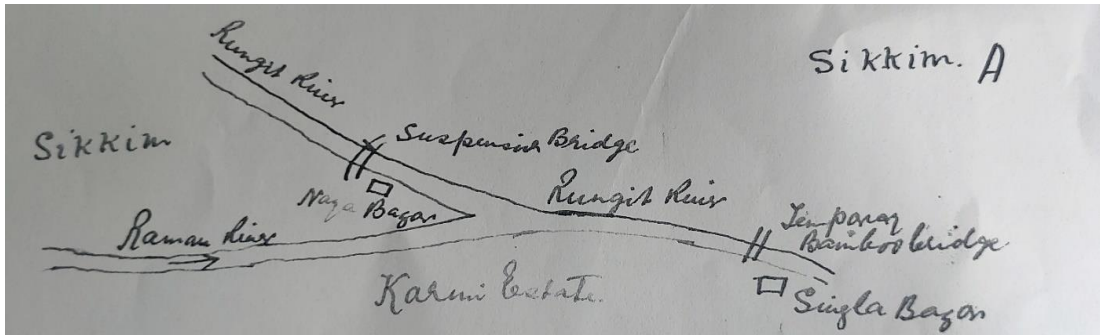 Rungit River
Sikkim. A
Sikkim
Suspension Bridge
Naya Bazar
Rungit River
Temporary
Bamboo bridge
Raman River
Karmi Estate.
Singla Bazar